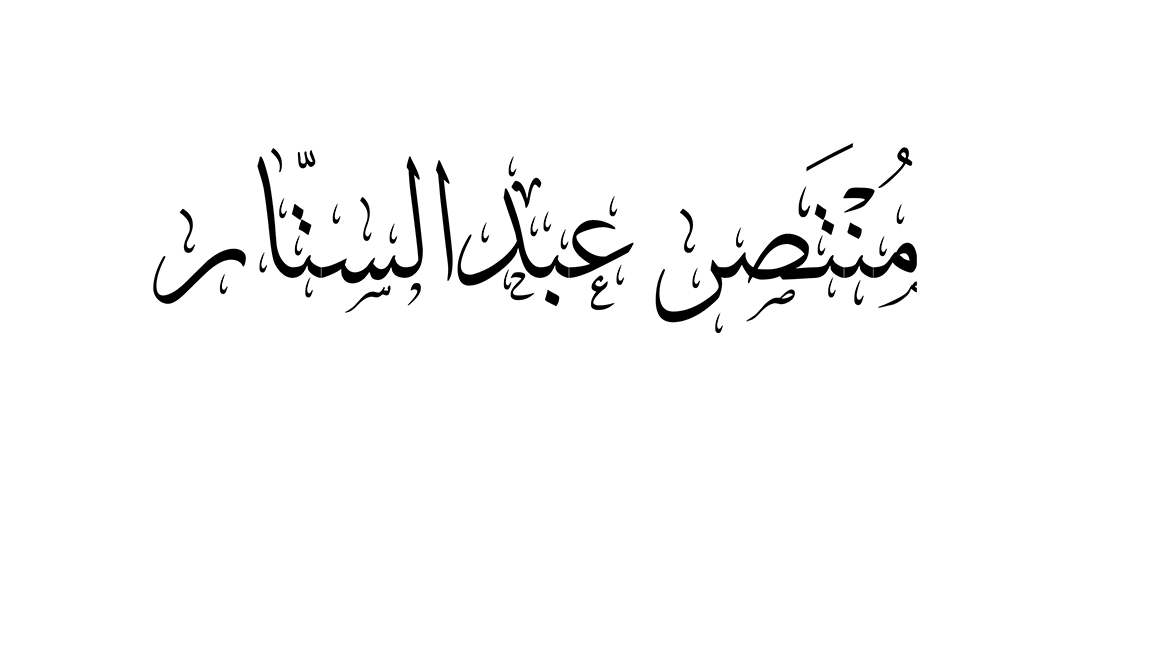 مُنْتَصر عبدالستّار